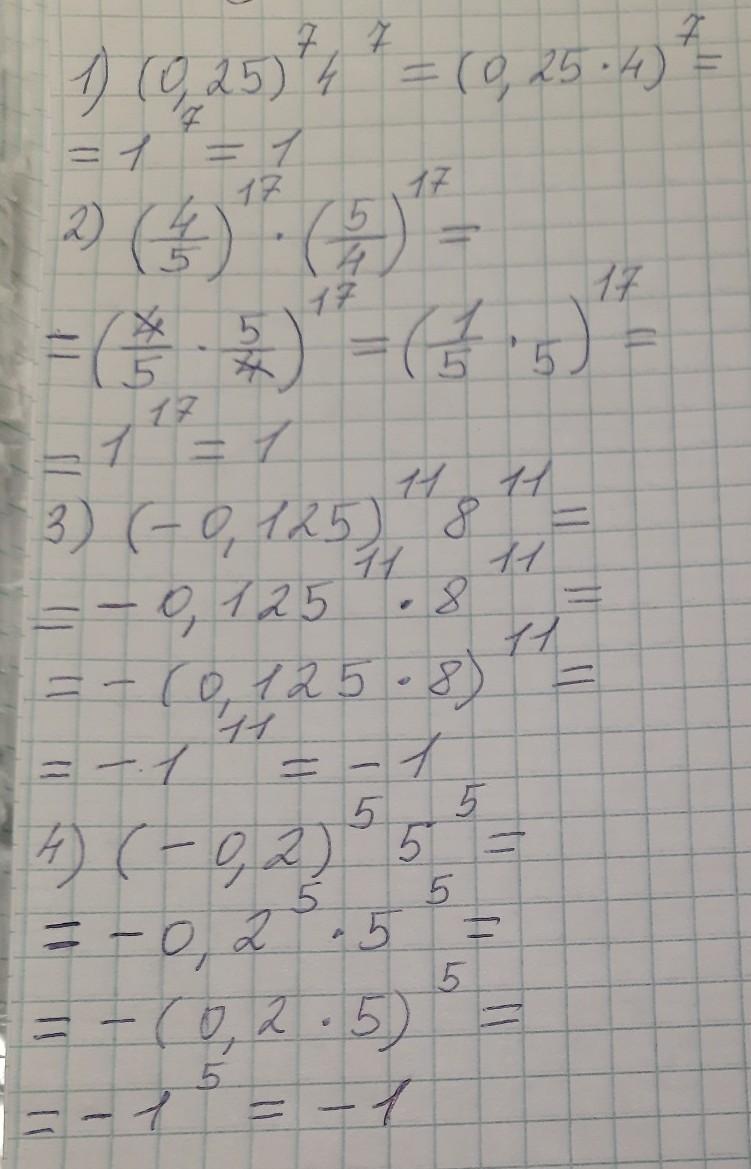 1) (0,25)⁷ 4⁷ = (0,25·4)⁷ =
= 1⁷ = 1
2) (4/5)¹⁷ · (5/4)¹⁷ =
= (4/5 · 5/4)¹⁷ = (1/5 · 5)¹⁷ =
= 1¹⁷ = 1
3) (-0,125)¹¹ 8¹¹ =
= -0,125¹¹ · 8¹¹ =
= -(0,125 · 8)¹¹ =
= -1¹¹ = -1
4) (-0,2)⁵ 5⁵ =
= -0,2⁵ · 5⁵ =
= -(0,2 · 5)⁵ =
= -1⁵ = -1